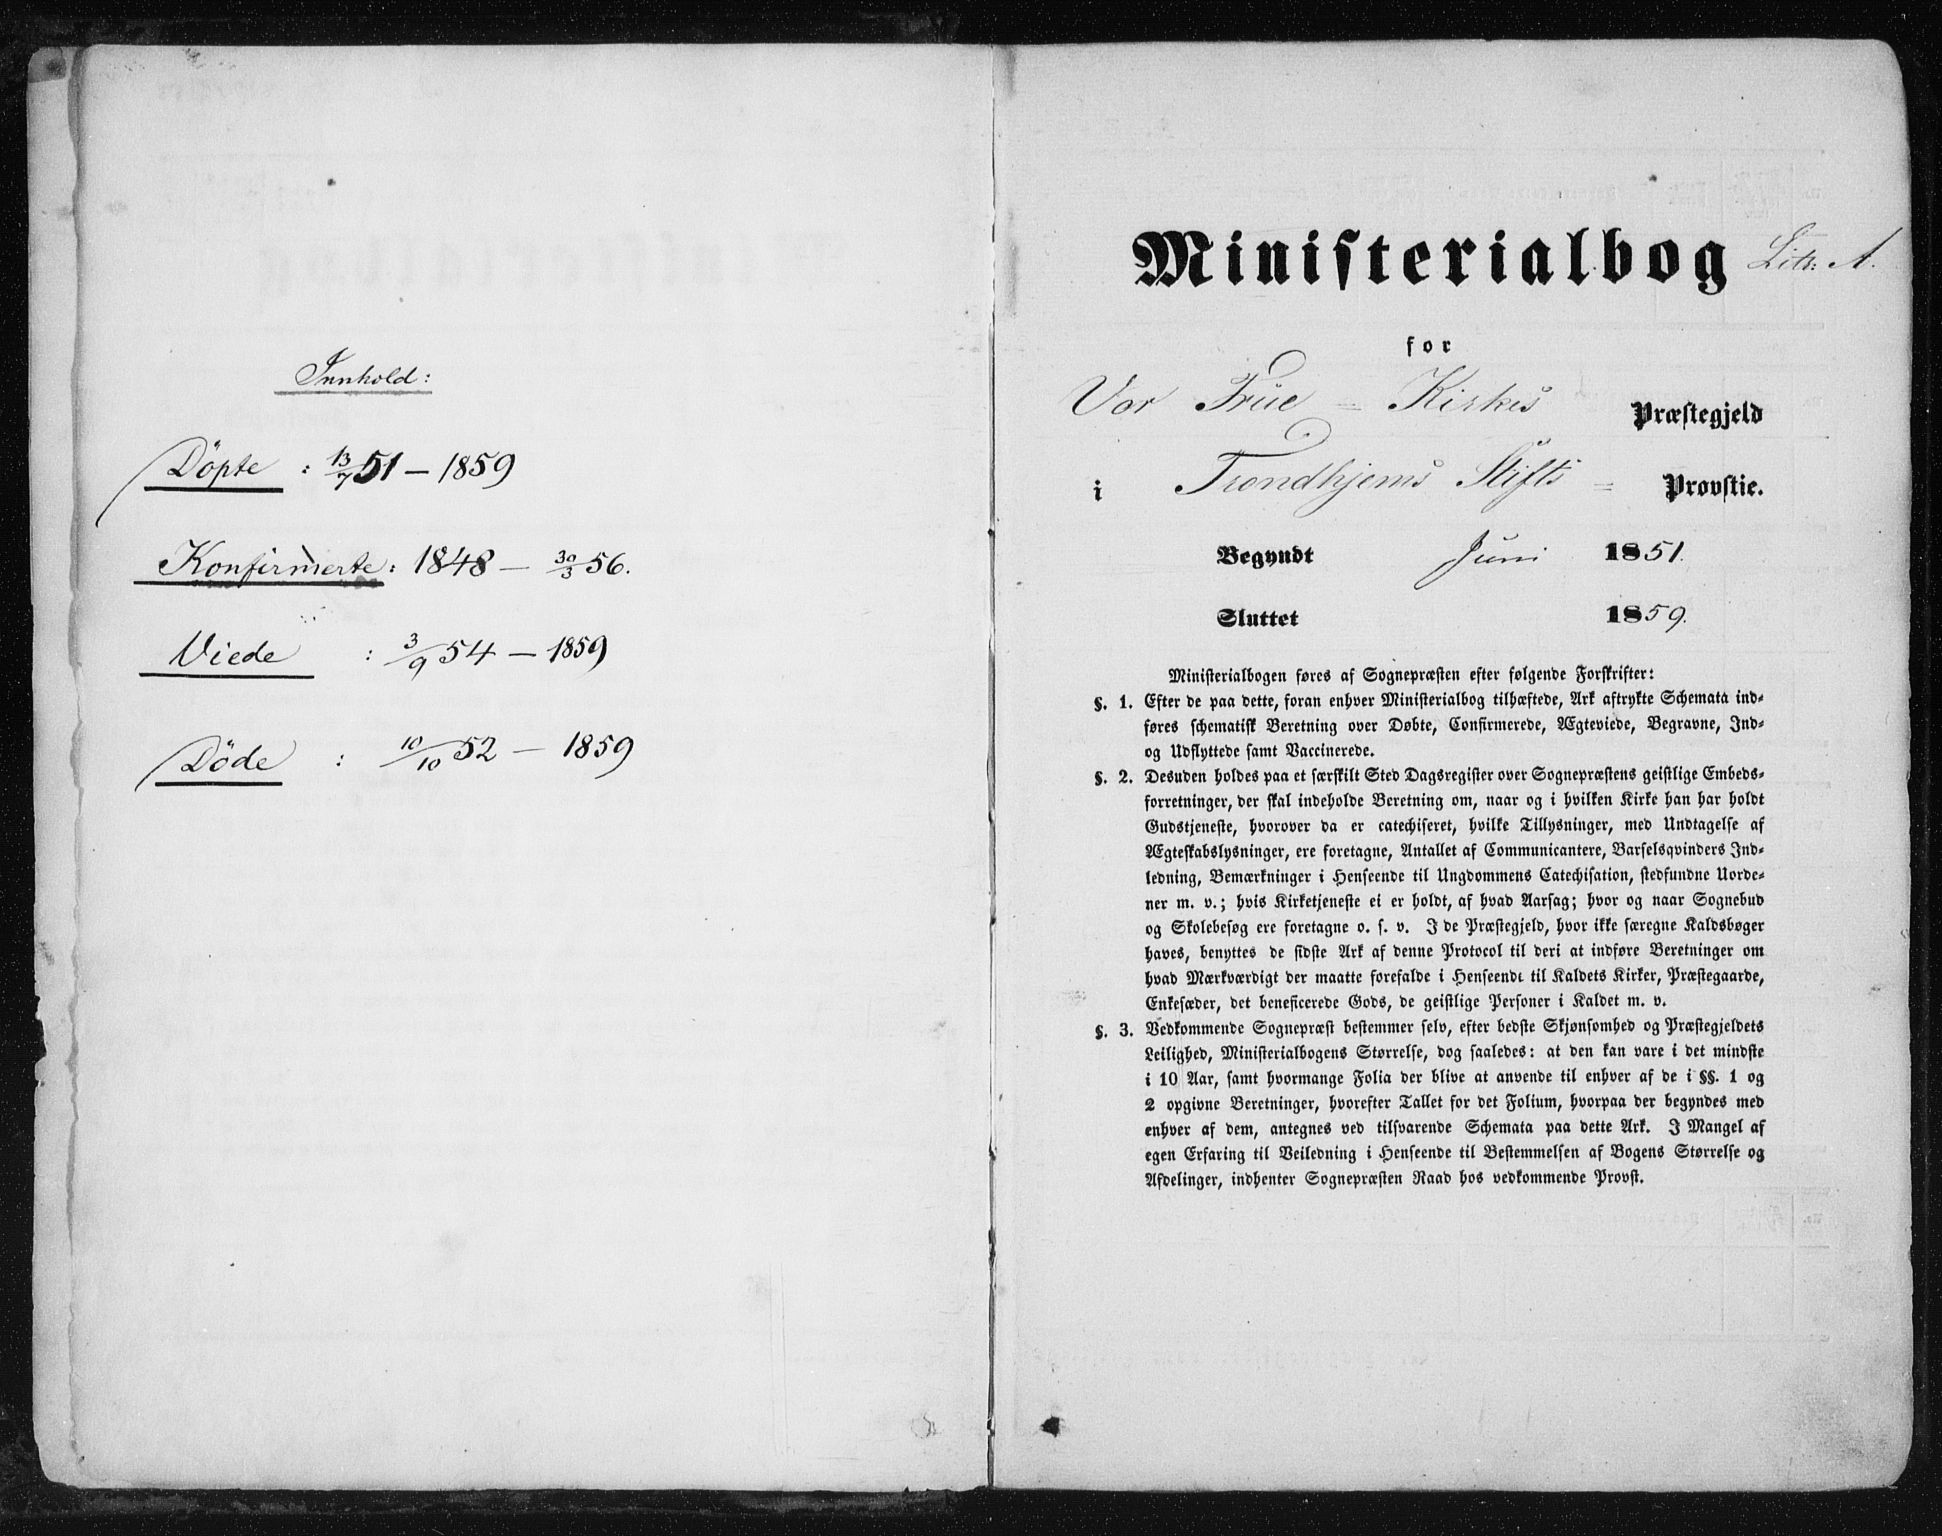 Innhold:
Döpte : 13/7 51 – 1859
Konfirmerte: 1848 – 30/3 56.
Viede : 3/9 54 – 1859
Döde : 10/10 52 – 1859
Ministerialbog Litr. A.
for
Vor Frue = Kirkes Præstegjeld
i Trondhjems Stifts = Provstie.
Begyndt Juni 1851.
Sluttet 1859.
Ministerialbogen føres af Sognepræsten efter følgende Forskrifter:
§. 1. Efter de paa dette, foran enhver Ministerialbog tilhæftede, Ark aftrykte Schemata ind-
føres schematisk Beretning over Døbte, Confirmerede, Ægteviede, Begravne, Ind-
og Udflyttede samt Vaccinerede.
§. 2. Desuden holdes paa et særskilt Sted Dagsregister over Sognepræstens geistlige Embeds-
forretninger, der skal indeholde Beretning om, naar og i hvilken Kirke han har holdt
Gudstjeneste, hvorover da er catechiseret, hvilke Tillysninger, med Undtagelse af
Ægteskabslysninger, ere foretagne, Antallet af Communicantere, Barselsqvinders Ind-
ledning, Bemærkninger i Henseende til Ungdommens Catechisation, stedfundne Uorde-
ner m. v.; hvis Kirketjeneste ei er holdt, af hvad Aarsag; hvor og naar Sognebud
og Skolebesøg ere foretagne o. s. v. I de Præstegjeld, hvor ikke særegne Kaldsbøger
haves, benyttes de sidste Ark af denne Protocol til deri at indføre Beretninger om
hvad Mærkværdigt der maatte forefalde i Henseende til Kaldets Kirker, Præstegaarde,
Enkesæder, det beneficerede Gods, de geistlige Personer i Kaldet m. v.
§. 3. Vedkommende Sognepræst bestemmer selv, efter bedste Skjønsomhed og Præstegjeldets
Leilighed, Ministerialbogens Størrelse, dog saaledes: at den kan vare i det mindste
i 10 Aar, samt hvormange Folia der blive at anvende til enhver af de i §§. 1 og
2 opgivne Beretninger, hvorefter Tallet for det Folium, hvorpaa der begyndes med
enhver af dem, antegnes ved tilsvarende Schemata paa dette Ark. I Mangel af
egen Erfaring til Veiledning i Henseende til Bestemmelsen af Bogens Størrelse og
Afdelinger, indhenter Sognepræsten Raad hos vedkommende Provst.